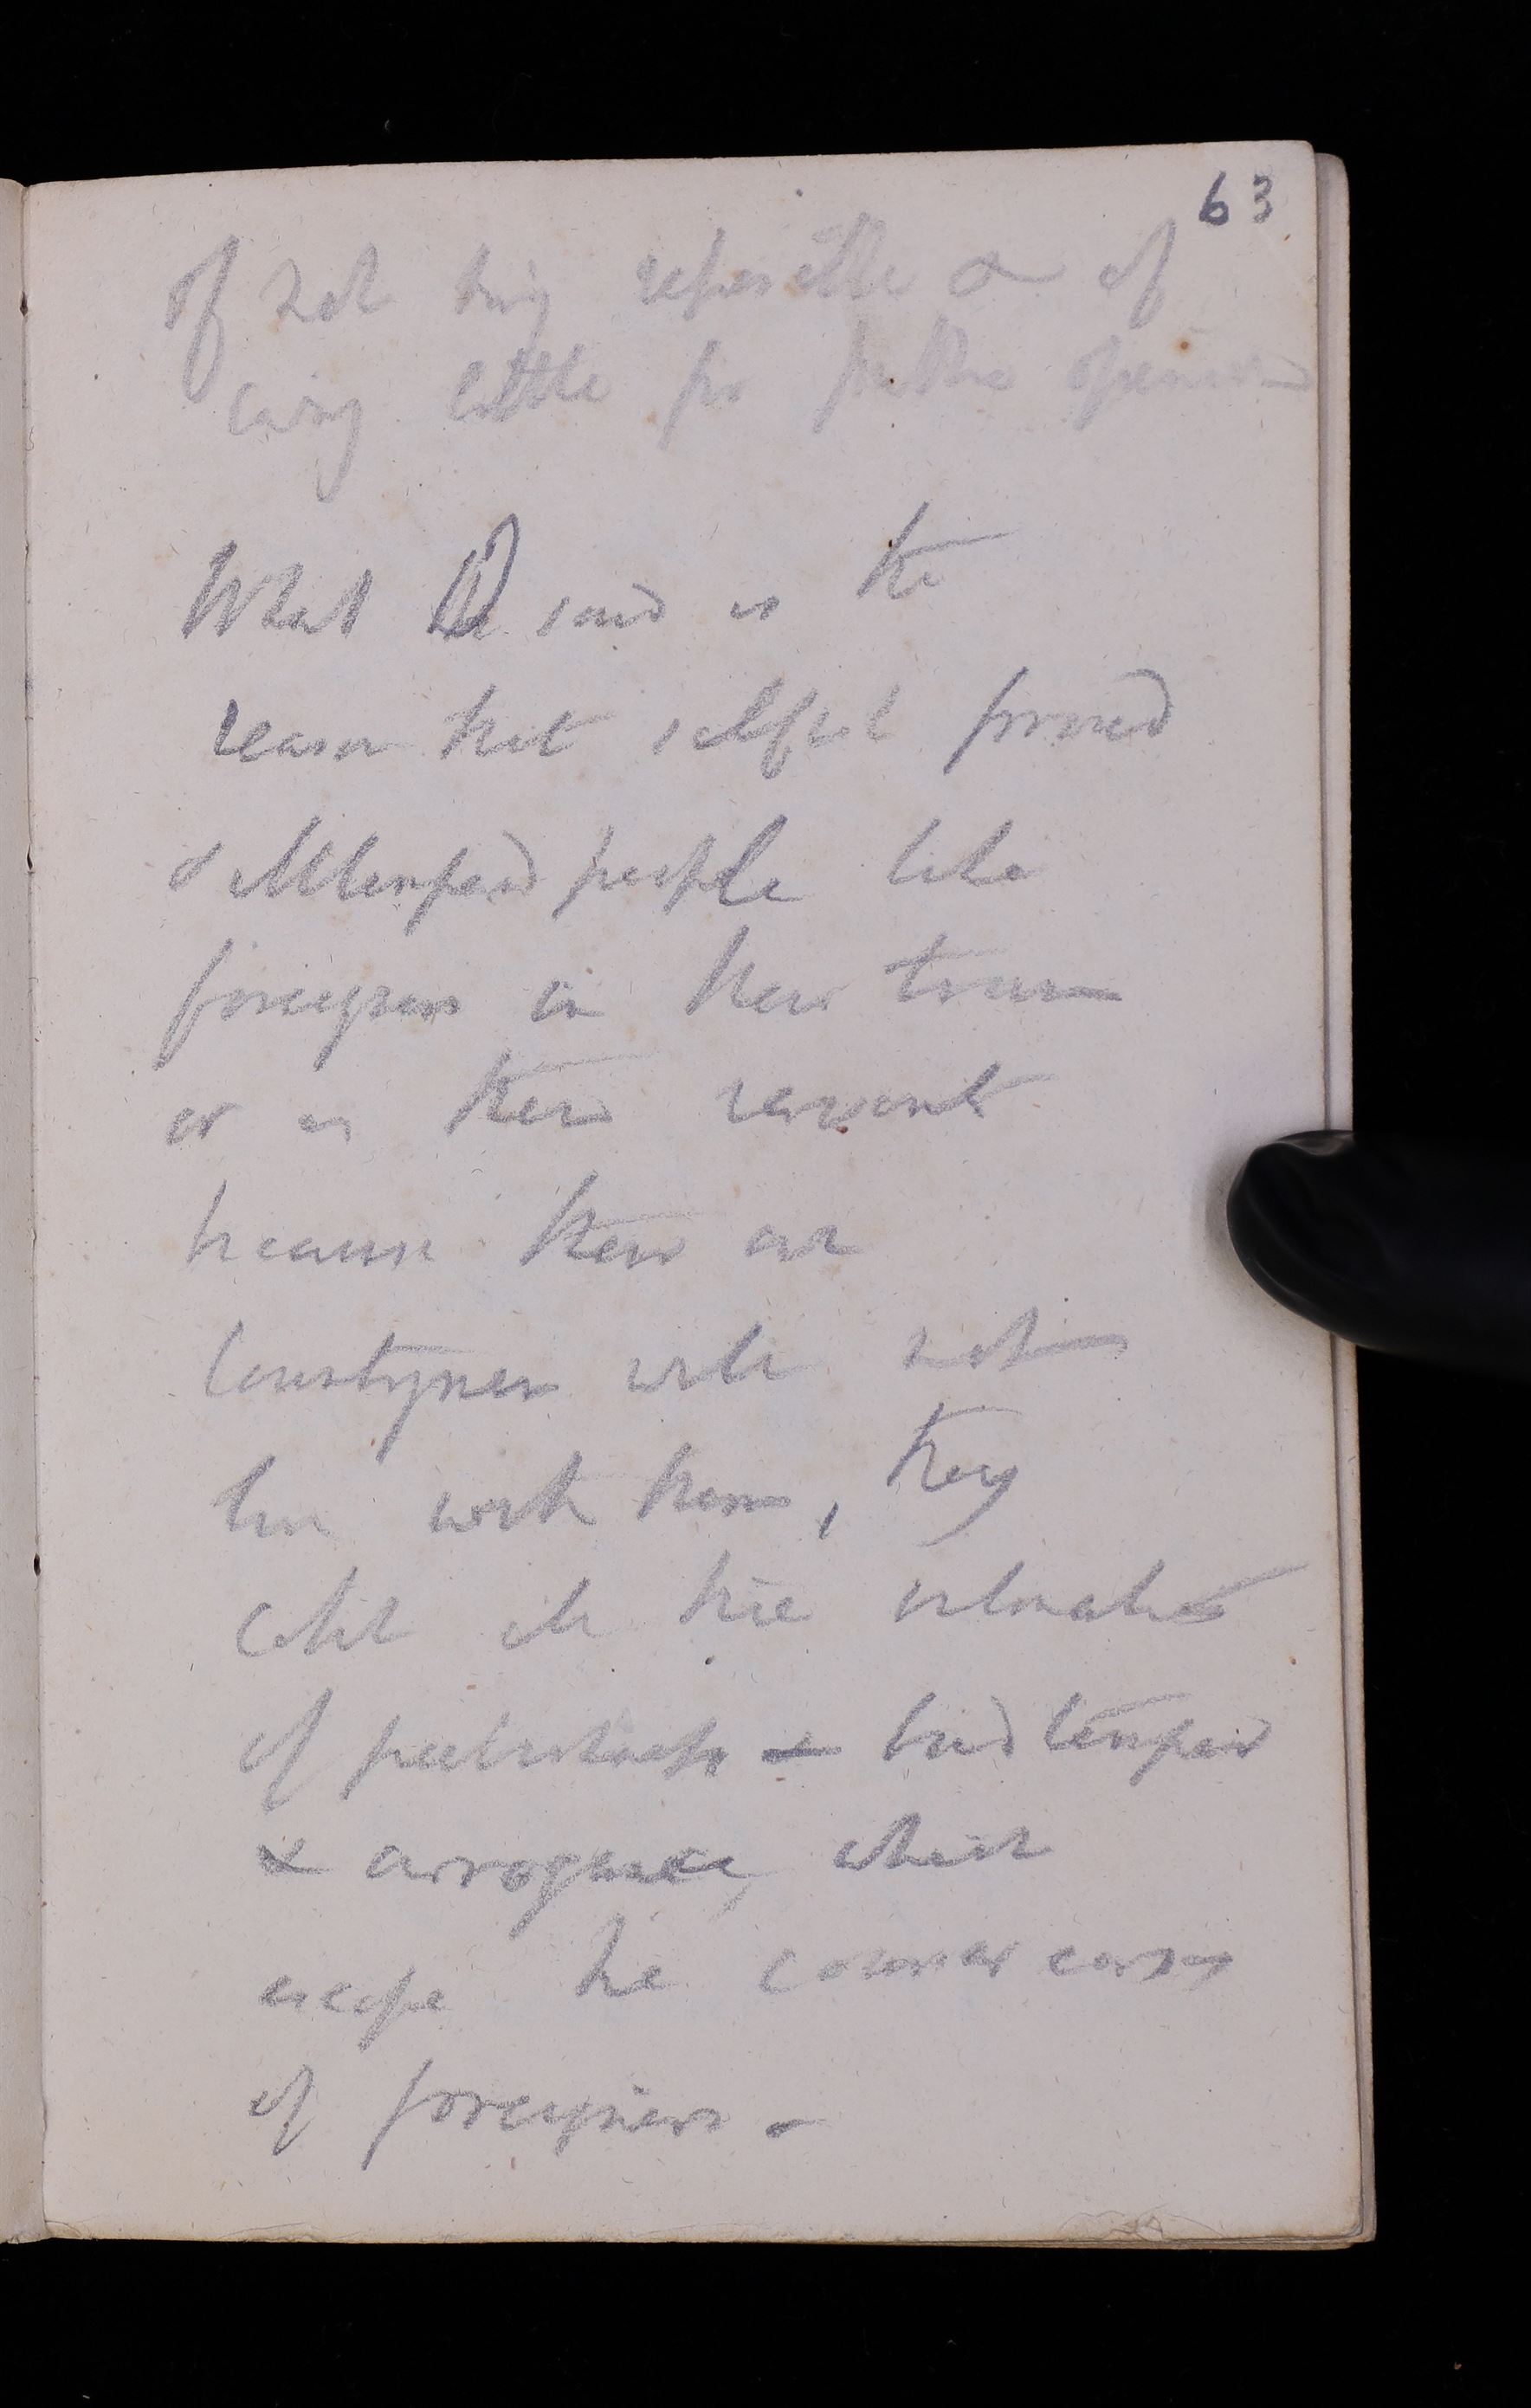 63
of not being respectable or of
caring little for public opinion
What D said is the
reason that selfish proud
& illtempered people like
foreigners in their train
or as their servants
because their own
Countrymen will not
live with them, they
catch the intonation
of bad temper
& arrogance, which
escape the coarser ears
of foreigners -